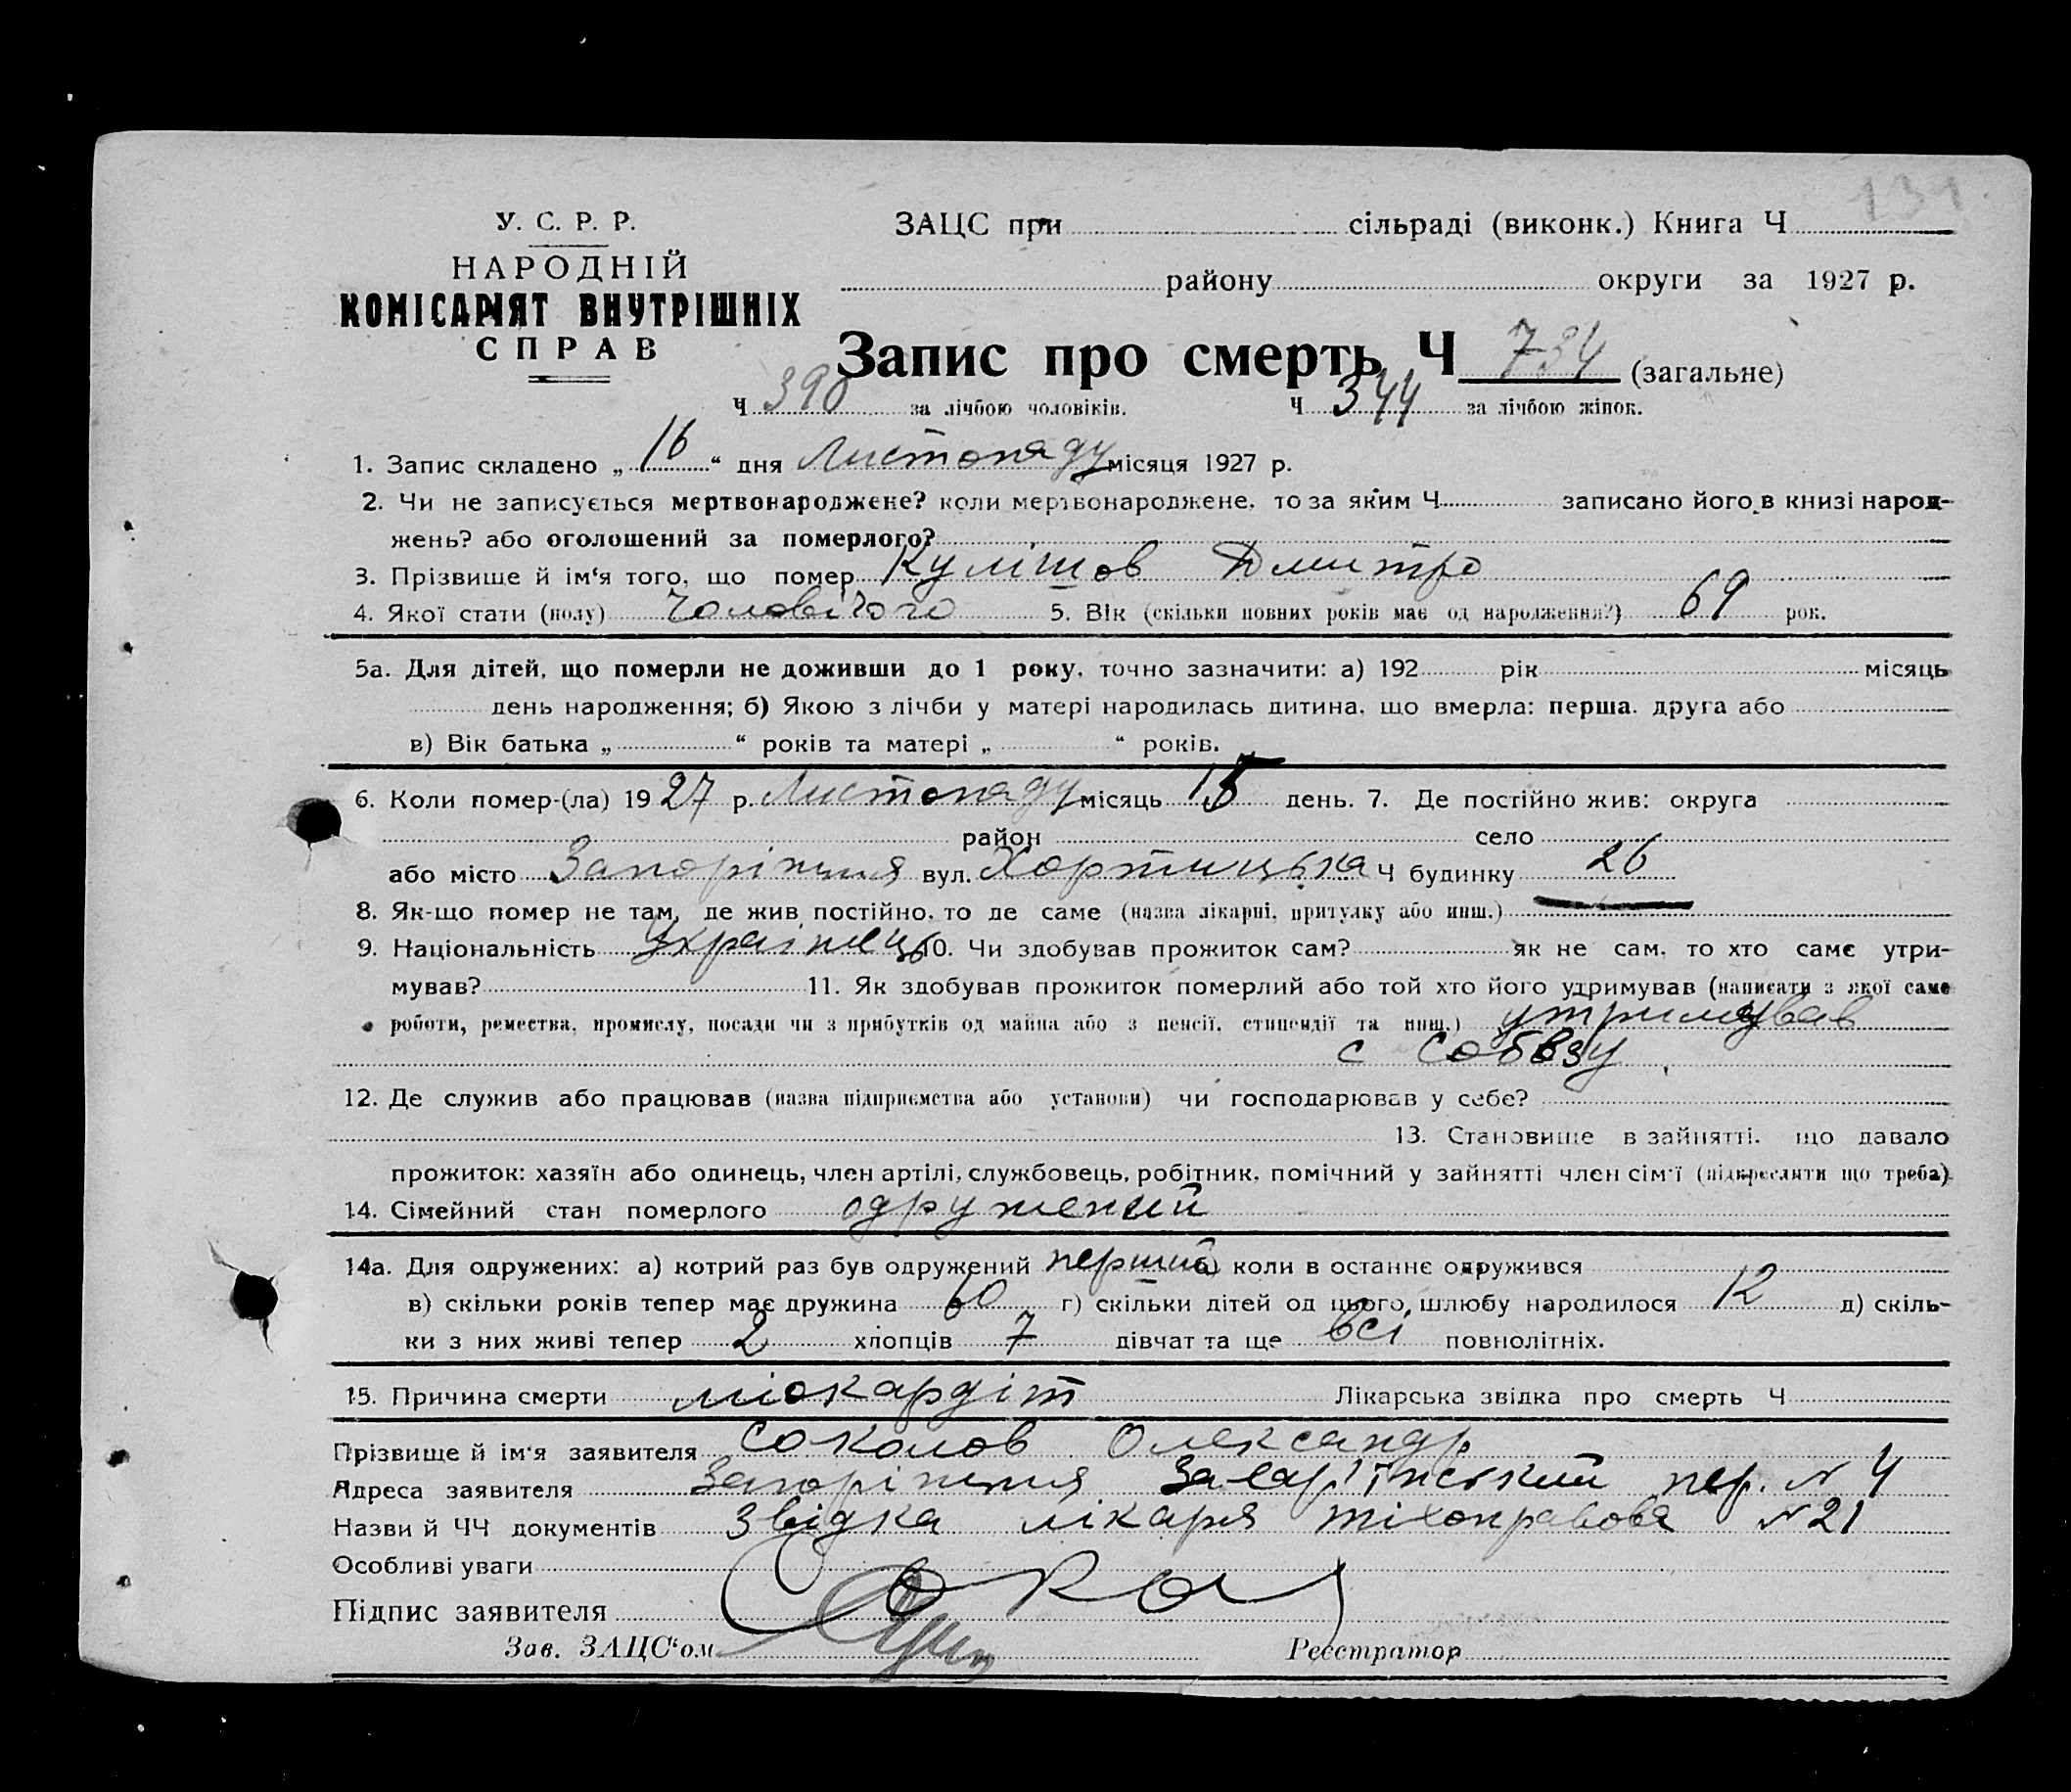 131
У. С. Р. Р.
НАРОДНІЙ
КОМІСАРІЯТ ВНУТРІШНІХ
СПРАВ
ЗАЦС при сільраді (виконк.) Книга Ч
району округи за 1927 р.
Запис про смерть Ч 734 (загальне)
Ч 390 за лічбою чоловіків. Ч 344 за лічбою жінок.
1. Запис складено „ 16 “ дня Листопаду місяця 1927 р.
2. Чи не записується мертвонароджене? коли мертвонароджене, то за яким Ч записано його в книзі народ-
жень? або оголошений за померлого?
3. Прізвище й ім‘я того, що помер Кулішов Дмитро
4. Якої стати (полу) Чоловічого 5. Вік (скільки повних років має од народження?) 69 рок.
5а. Для дітей, що померли не доживши до 1 року, точно зазначити: а) 192 рік місяць
день народження; б) Якою з лічби у матері народилась дитина, що вмерла: перша, друга або
в) Вік батька „ “ років та матері „ “ років.
6. Коли помер-(ла) 1927 р. Листопаду місяць 15 день. 7. Де постійно жив: округа
район село
або місто Запоріжжя вул. Хортицька Ч будинку 26
8. Як-що помер не там, де жив постійно, то де саме (назва лікарні, притулку або инш.)
9. Національність Українець 10. Чи здобував прожиток сам? як не сам, то хто саме утри-
мував? 11. Як здобував прожиток померлий або той хто його утримував (написати з якої саме
роботи, ремества, промислу, посади чи з прибутків од майна або з пенсії, стипендії та инш.) утримував
с собвзу
12. Де служив або працював (назва підприємства або установи) чи господарював у себе?
13. Становище в зайнятті, що давало
прожиток: хазяїн або одинець, член артілі, службовець, робітник, помічний у зайнятті член сім‘ї (підкреслити що треба)
14. Сімейний стан померлого одружений
14а. Для одружених: а) котрий раз був одружений перший б) коли в останнє одружився
в) скільки років тепер має дружина 60 г) скільки дітей од цього шлюбу народилося 12 д) скіль-
ки з них живі тепер 2 хлопців 7 дівчат та ще всі повнолітніх.
15. Причина смерти міокардіт Лікарська звідка про смерть Ч
Прізвище й ім‘я заявителя Соколов Олександр
Адреса заявителя Запоріжжя пер. № 4
Назви й ЧЧ документів Звідка лікаря Тіхонравова № 21
Особливі уваги
Підпис заявителя Сокол
Зав. ЗАЦС‘ом Реєстратор